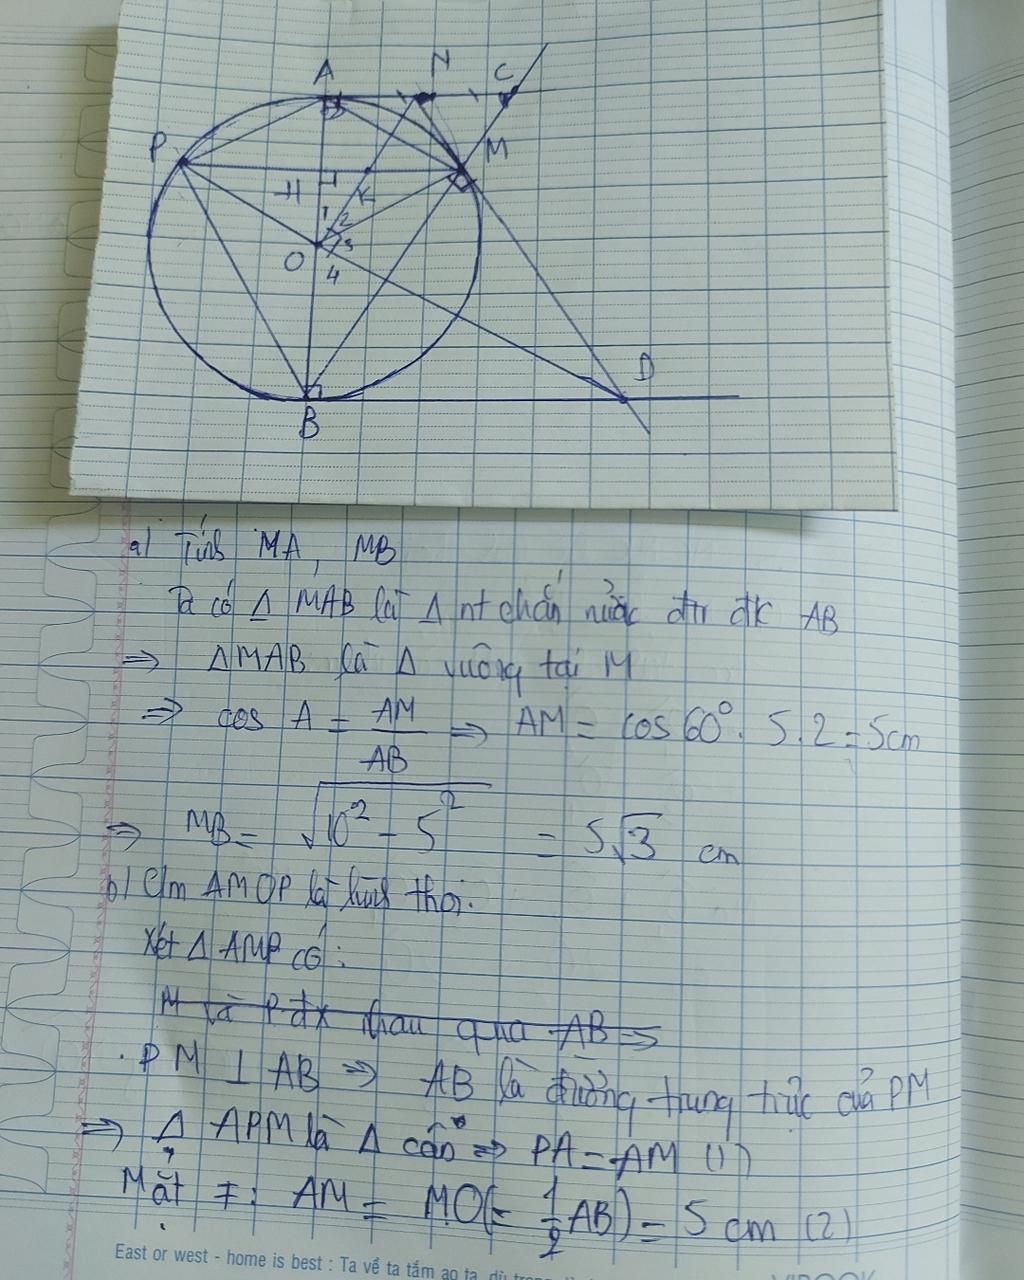 A N C
P M
H K
1 2
O 3
4
D
B
a) Tính MA, MB
Ta có Δ MAB là Δ nt chắn nửa đtr đk AB
⇒ ΔMAB là Δ vuông tại M
⇒ cos A = AM/AB ⇒ AM = cos 60°. 5.2 = 5cm
⇒ MB = √(10² - 5²) = 5√3 cm
b) C/m AMOP là hình thoi.
Xét Δ AMP có:
M và P đx nhau qua AB ⇒
PM ⊥ AB ⇒ AB là đường trung trực của PM
⇒ Δ APM là Δ cân ⇒ PA = AM (1)
Mặt ≠: AM = MO (= 1/2 AB) = 5 cm (2)
East or west - home is best : Ta về ta tắm ao ta, dù